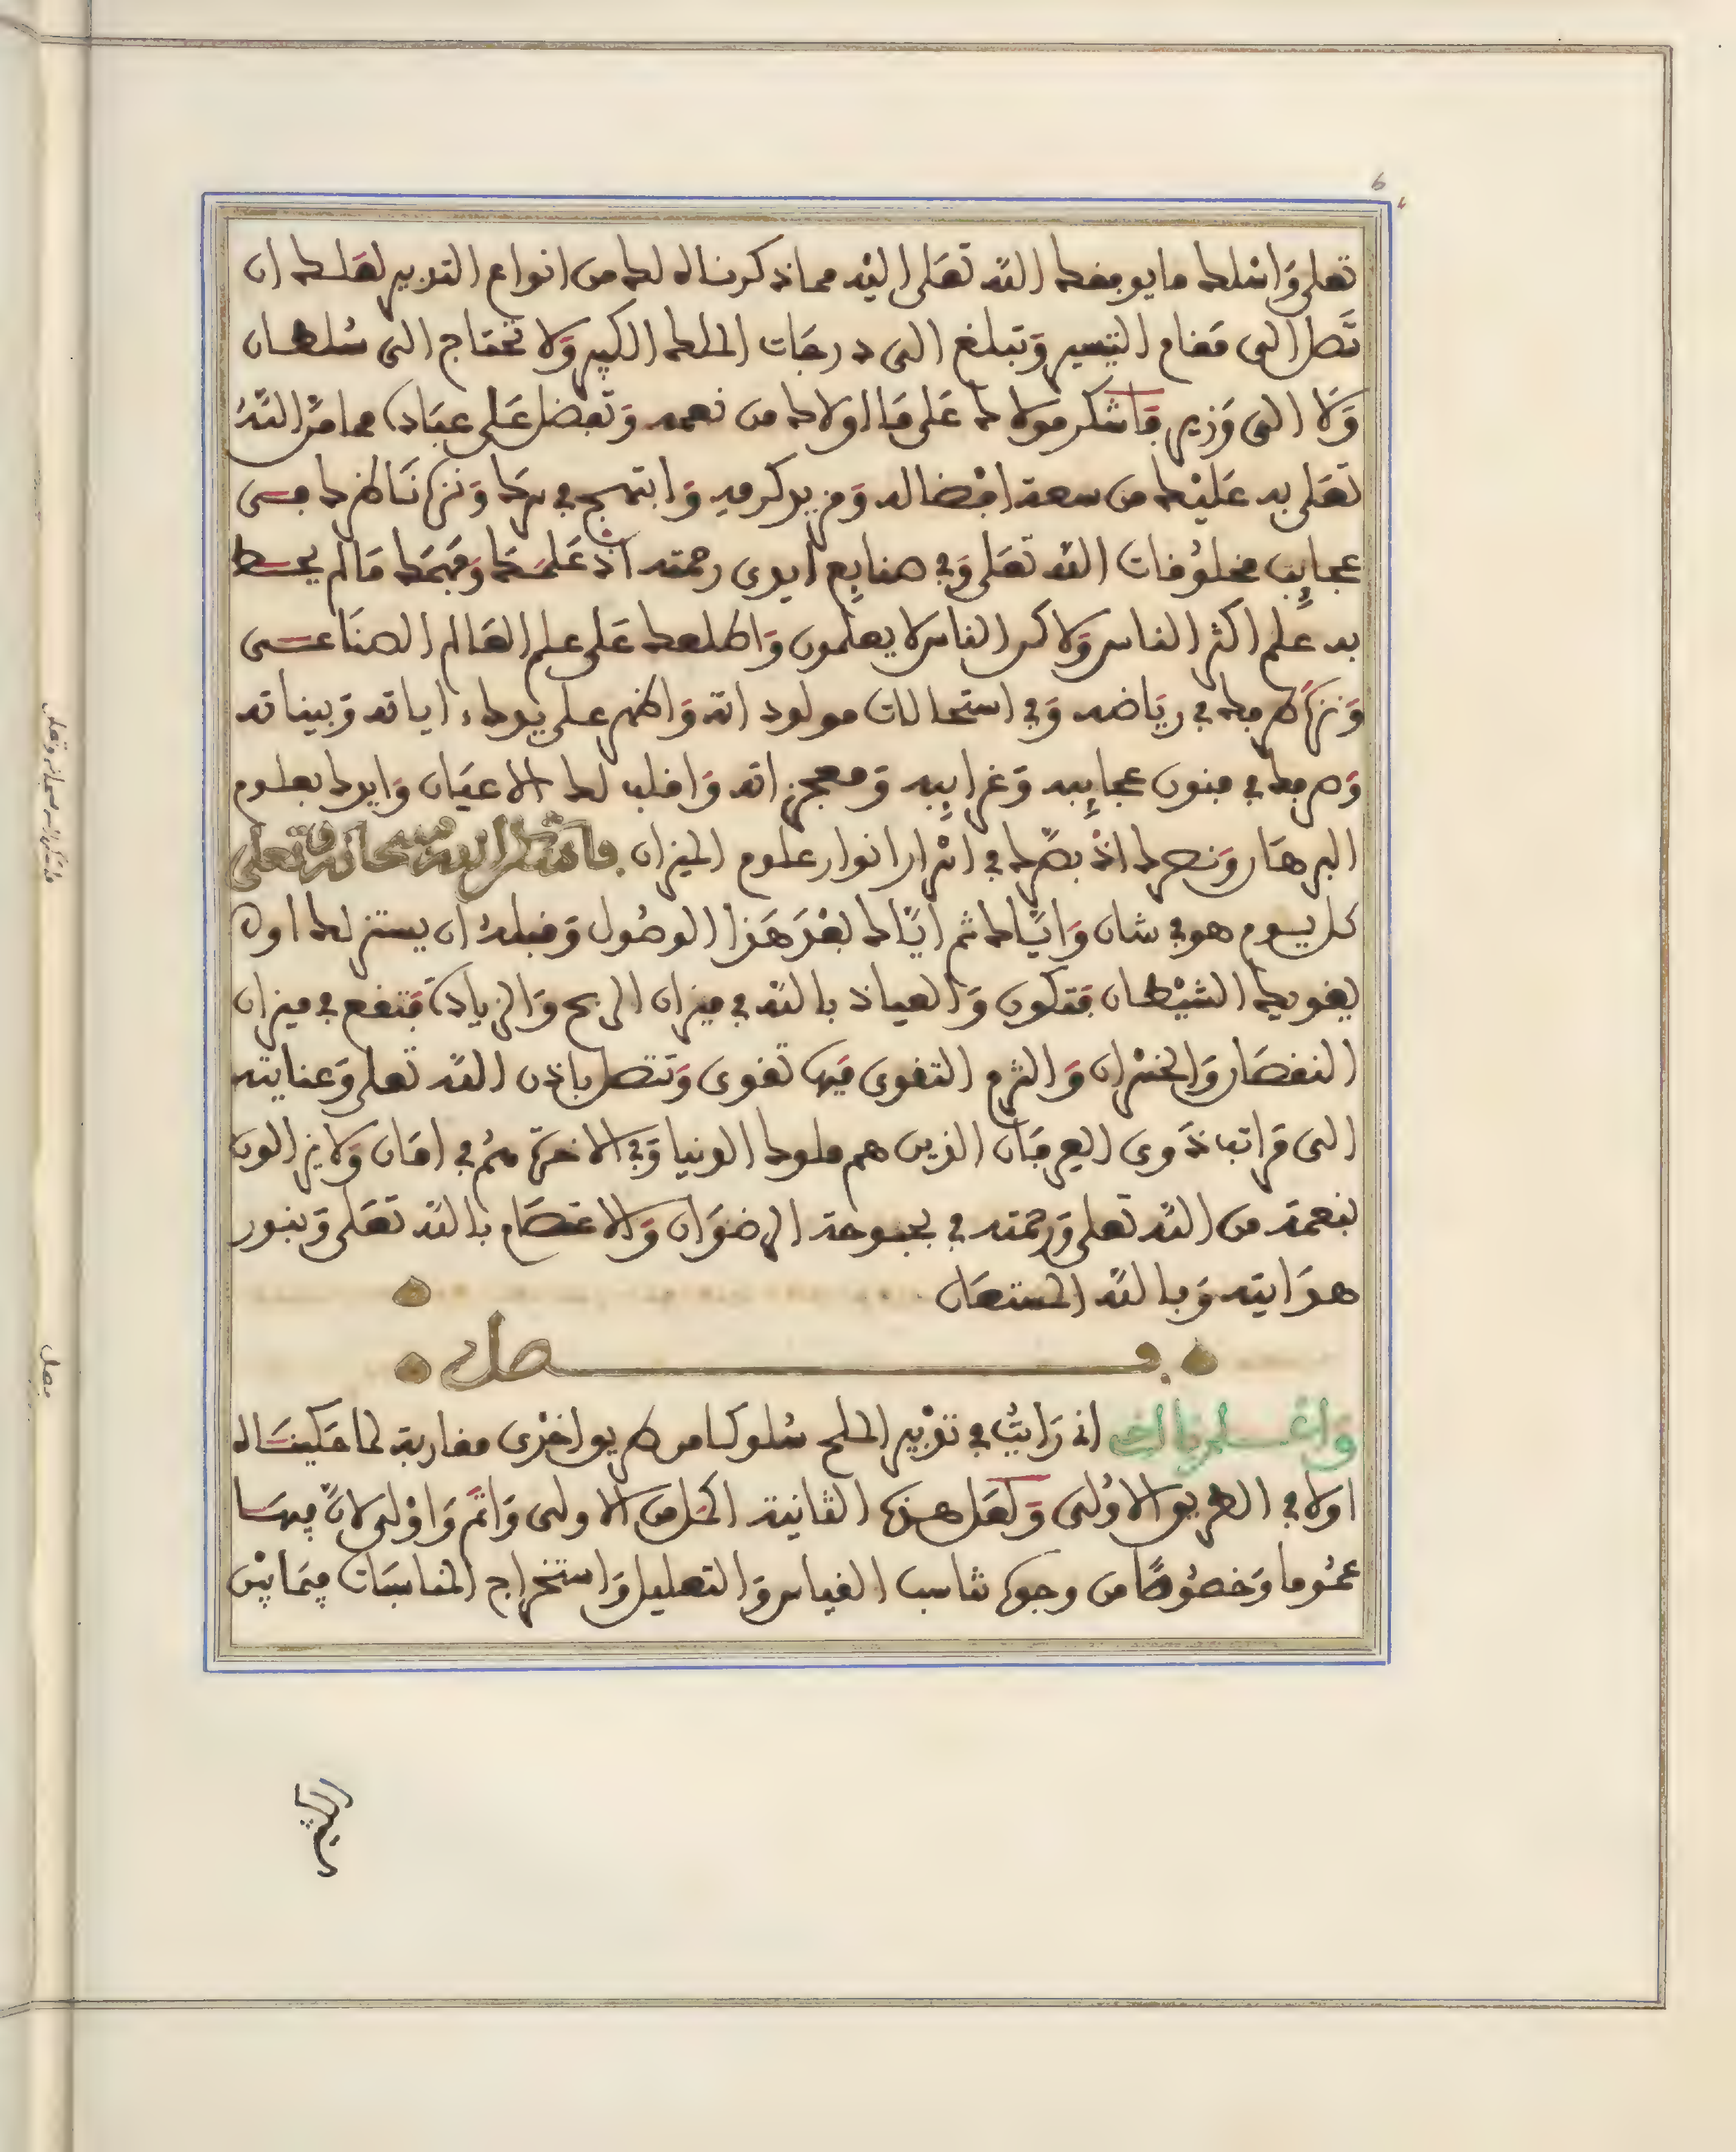 تعلى وَاسْلك ما يوفقك اللّه تعَلى اليْه مما ذكرناه لك من انواع التدبير لعَلك ان
تَصل الى مَقام التيسير وَتبلغ الى درجَات الملك الكبير وَلا تحتاج الى سُلطان
وَلَا الى وَزير فَاشكر مولاك عَلى مَا اولاك من نعمه وَتفضل عَلى عبَاده مما مَنَّ اللّهُ
تعَلى به عَليْك من سعة افْضاله وَمزيد كرمه وَابتهج في سرك وَنزه نَاظرك في
عجايِب مخلوُقات اللّه تعَلى وَفي صنايِع ايدى رحمته اذ عَلمَك وَفهمَك مَا لم يحط
به عِلم اكثر الناس وَلاكن الناس لا يعلمون وَاطلعك عَلى علم العَالم الصنَاعى
وَنزه طرفك في ريَاضه وَفي استحالات مولوداته وَاظهر على يدك اياته وَبيناته
وَصرفك في فنون عجايِبه وَغرايِبه وَمعجزاته وَاقلب لك الاعيَان وَايدك بعلوم
البرهَان وَنصرك اذْ بصَّرك في اسْرار انوار علوم الميزان فاشكر اللّه سبحانه وتعلى
كل يوم هو في شان وَايَّاك ثم ايَّاك بعْدَ هَذا الوصُول وَقبلهُ ان يستزلك اوه
يغويك الشيْطان فتكون وَالعياذ باللّه في ميزان الربح وَالزيادة فَتقع في ميزان
النقصَان وَالخسْران وَالزم التقوى فبها تقوى وَتتصل باذن اللّه تعلى وَعنايته
الى مَراتب ذَوى العِرفَان الذين هم ملوك الدنيا وَفي الاخرة هُم في امَان وَلا يزالون
بنعمة من اللّه تعلى وَرحمته في بحبوحة الرضوَان وَالاعتصَام باللّه تعَلى وَبنور
هدَايته وَباللّه المستعَان
فصل
وَاعلم يا اخى انى رَايتُ في تدْبير الملح سُلوكا من طريق اخْرى مقاربة لما حَكينَاه
اولا في الطريق الاوُلى وَلعَل هذه الثانية اكمَل من الاولى وَاتمَّ وَاوْلى لانَّ فيهَا
عمُوما وَخصُوصًا من وجوه تناسب القياس وَالتعليل وَاستخراج المناسَبات فيمَا بيْن